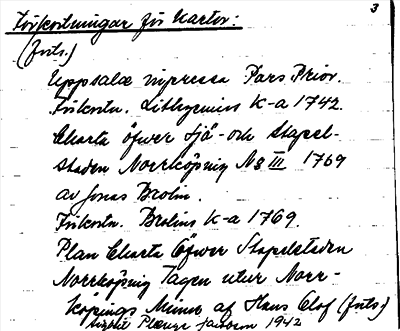 3
Förkortningar för Kartor:
(forts.)
Uppsalæ impressa Pars Prior.
Förkortn. Lithzenius K-a 1742.
Charta öfwer Sjö- och Stapel-
staden Norrköping N8 III 1769
av Jonas Brolin.
Förkortn. Brolins K-a 1769.
Plan Charta Öfwer Stapelstaden
Norrköping Tagen utur Norr-
köpings Minne af Hans Olof (forts.)
1942